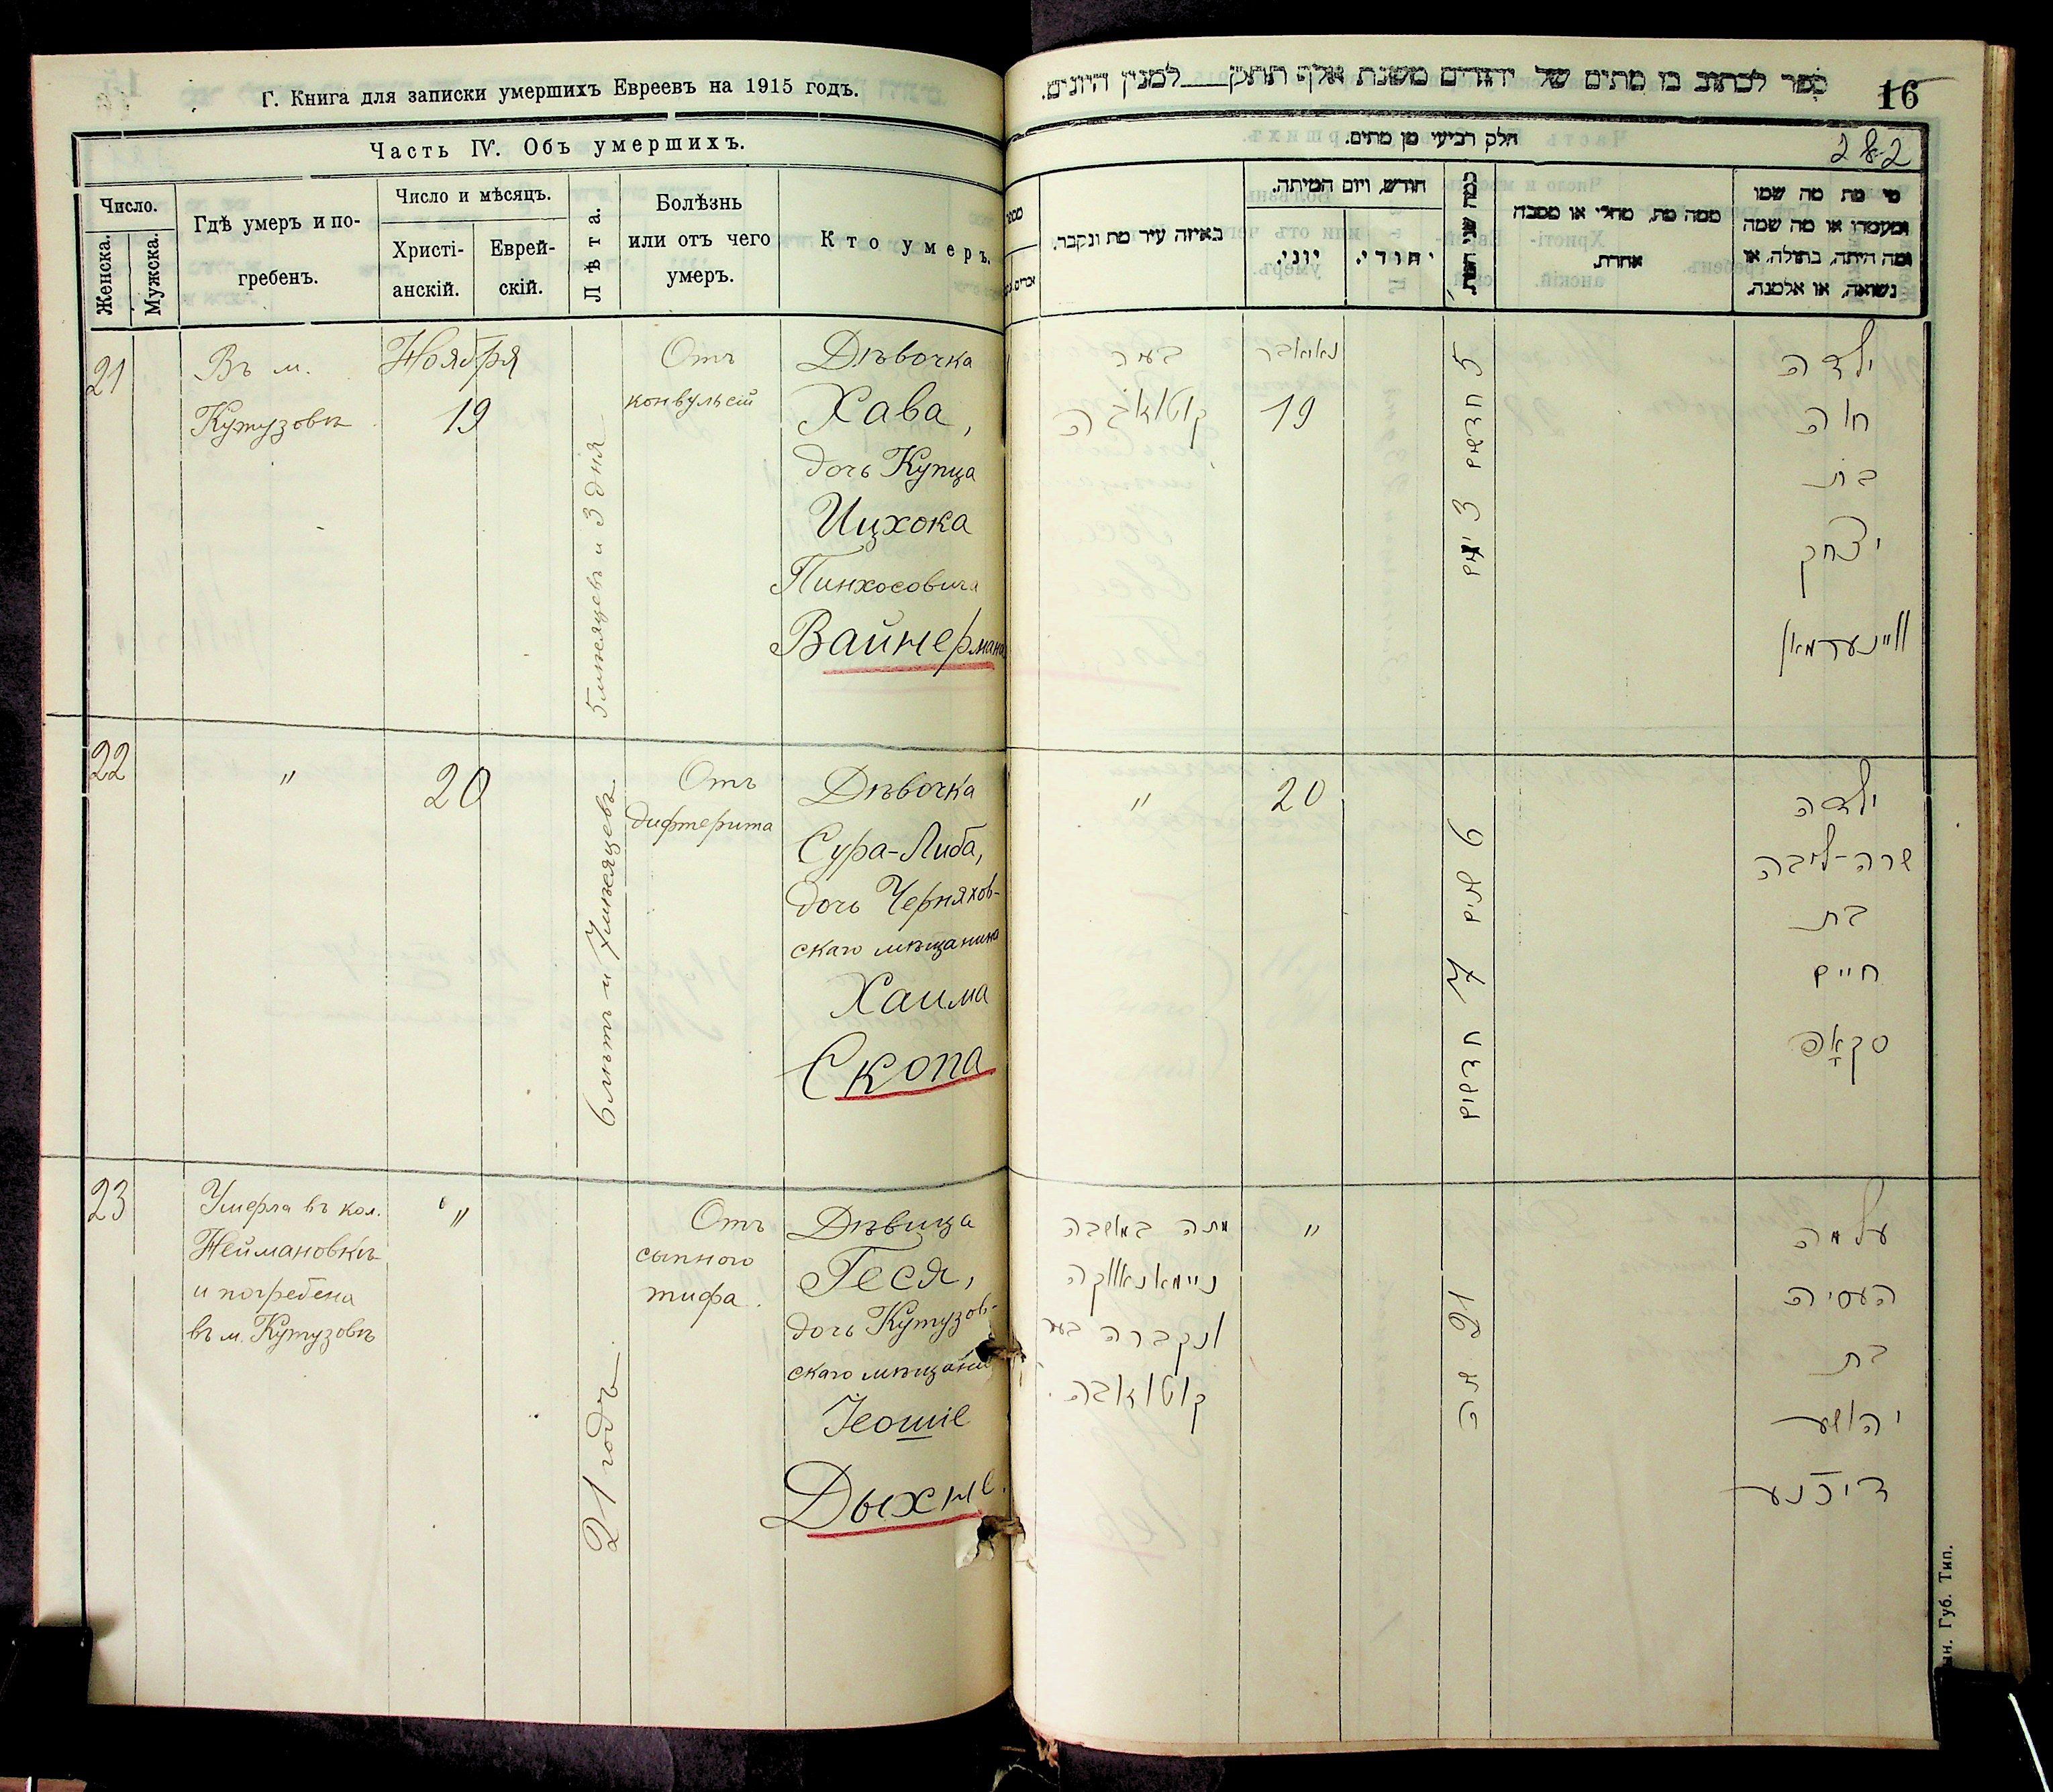 Г. Книга для записки умершихъ Евреевъ на 1915 годъ.
Часть IV. Объ умершихъ.
Число.
Женска.
Мужска.
Гдѣ умеръ и по-
гребенъ.
Число и мѣсяцъ.
Христі-
анскій.
Еврей-
скій.
Лѣта.
Болѣзнь
или отъ чего
умеръ.
Кто умеръ.
21
Въ м.
Кутузовѣ
Ноября
19
5 мѣсяцевъ и 3 дня
Отъ
конвульсій
Дѣвочка
Хава,
дочь Купца
Ицхока
Пинхосовича
Вайнермана
22
"
20
6 лѣтъ и 7 мѣсяцевъ
Отъ
дифтерита
Дѣвочка
Сура-Либа,
дочь Черняхов-
скаго мѣщанина
Хаима
Скопа
23
Умерла въ кол.
Неймановкѣ
и погребена
въ м. Кутузовѣ
"
21 годъ
Отъ
сыпного
тифа.
Дѣвица
Геся,
дочь Кутузов-
скаго мѣщани
Іеошіе
Дыхне.
ספר לכתוב בו מתים של יהודים משנת אלף תתק למנין היונים.
16
חלק רביעי מן מתים.
מי מת מה שמו
ומעמדו או מה שמה
ומה היתה, בתולה, או
נשואה, או אלמנה.
ממה מת, מחלי או מסבה
אחרת.
כמה שני המת.
חודש, ויום המיתה.
יהודי.
יוני.
באיזה עיר מת ונקבר.
ילדה
חוה
בת
יצחק
וויינערמאן
5 חדשים 3 ימים
נאיאבר
19
בעיר
ילדה
שרה-ליבה
בת
חיים
סקאָפ
6 שנים 7 חדשים
20
"
עלמה
העסיה
בת
יהושע
דיכנע
21 שנה
"
מתה במושבה
ניימאנאווקה
ונקברה בעיר
ин. Губ. Тип.